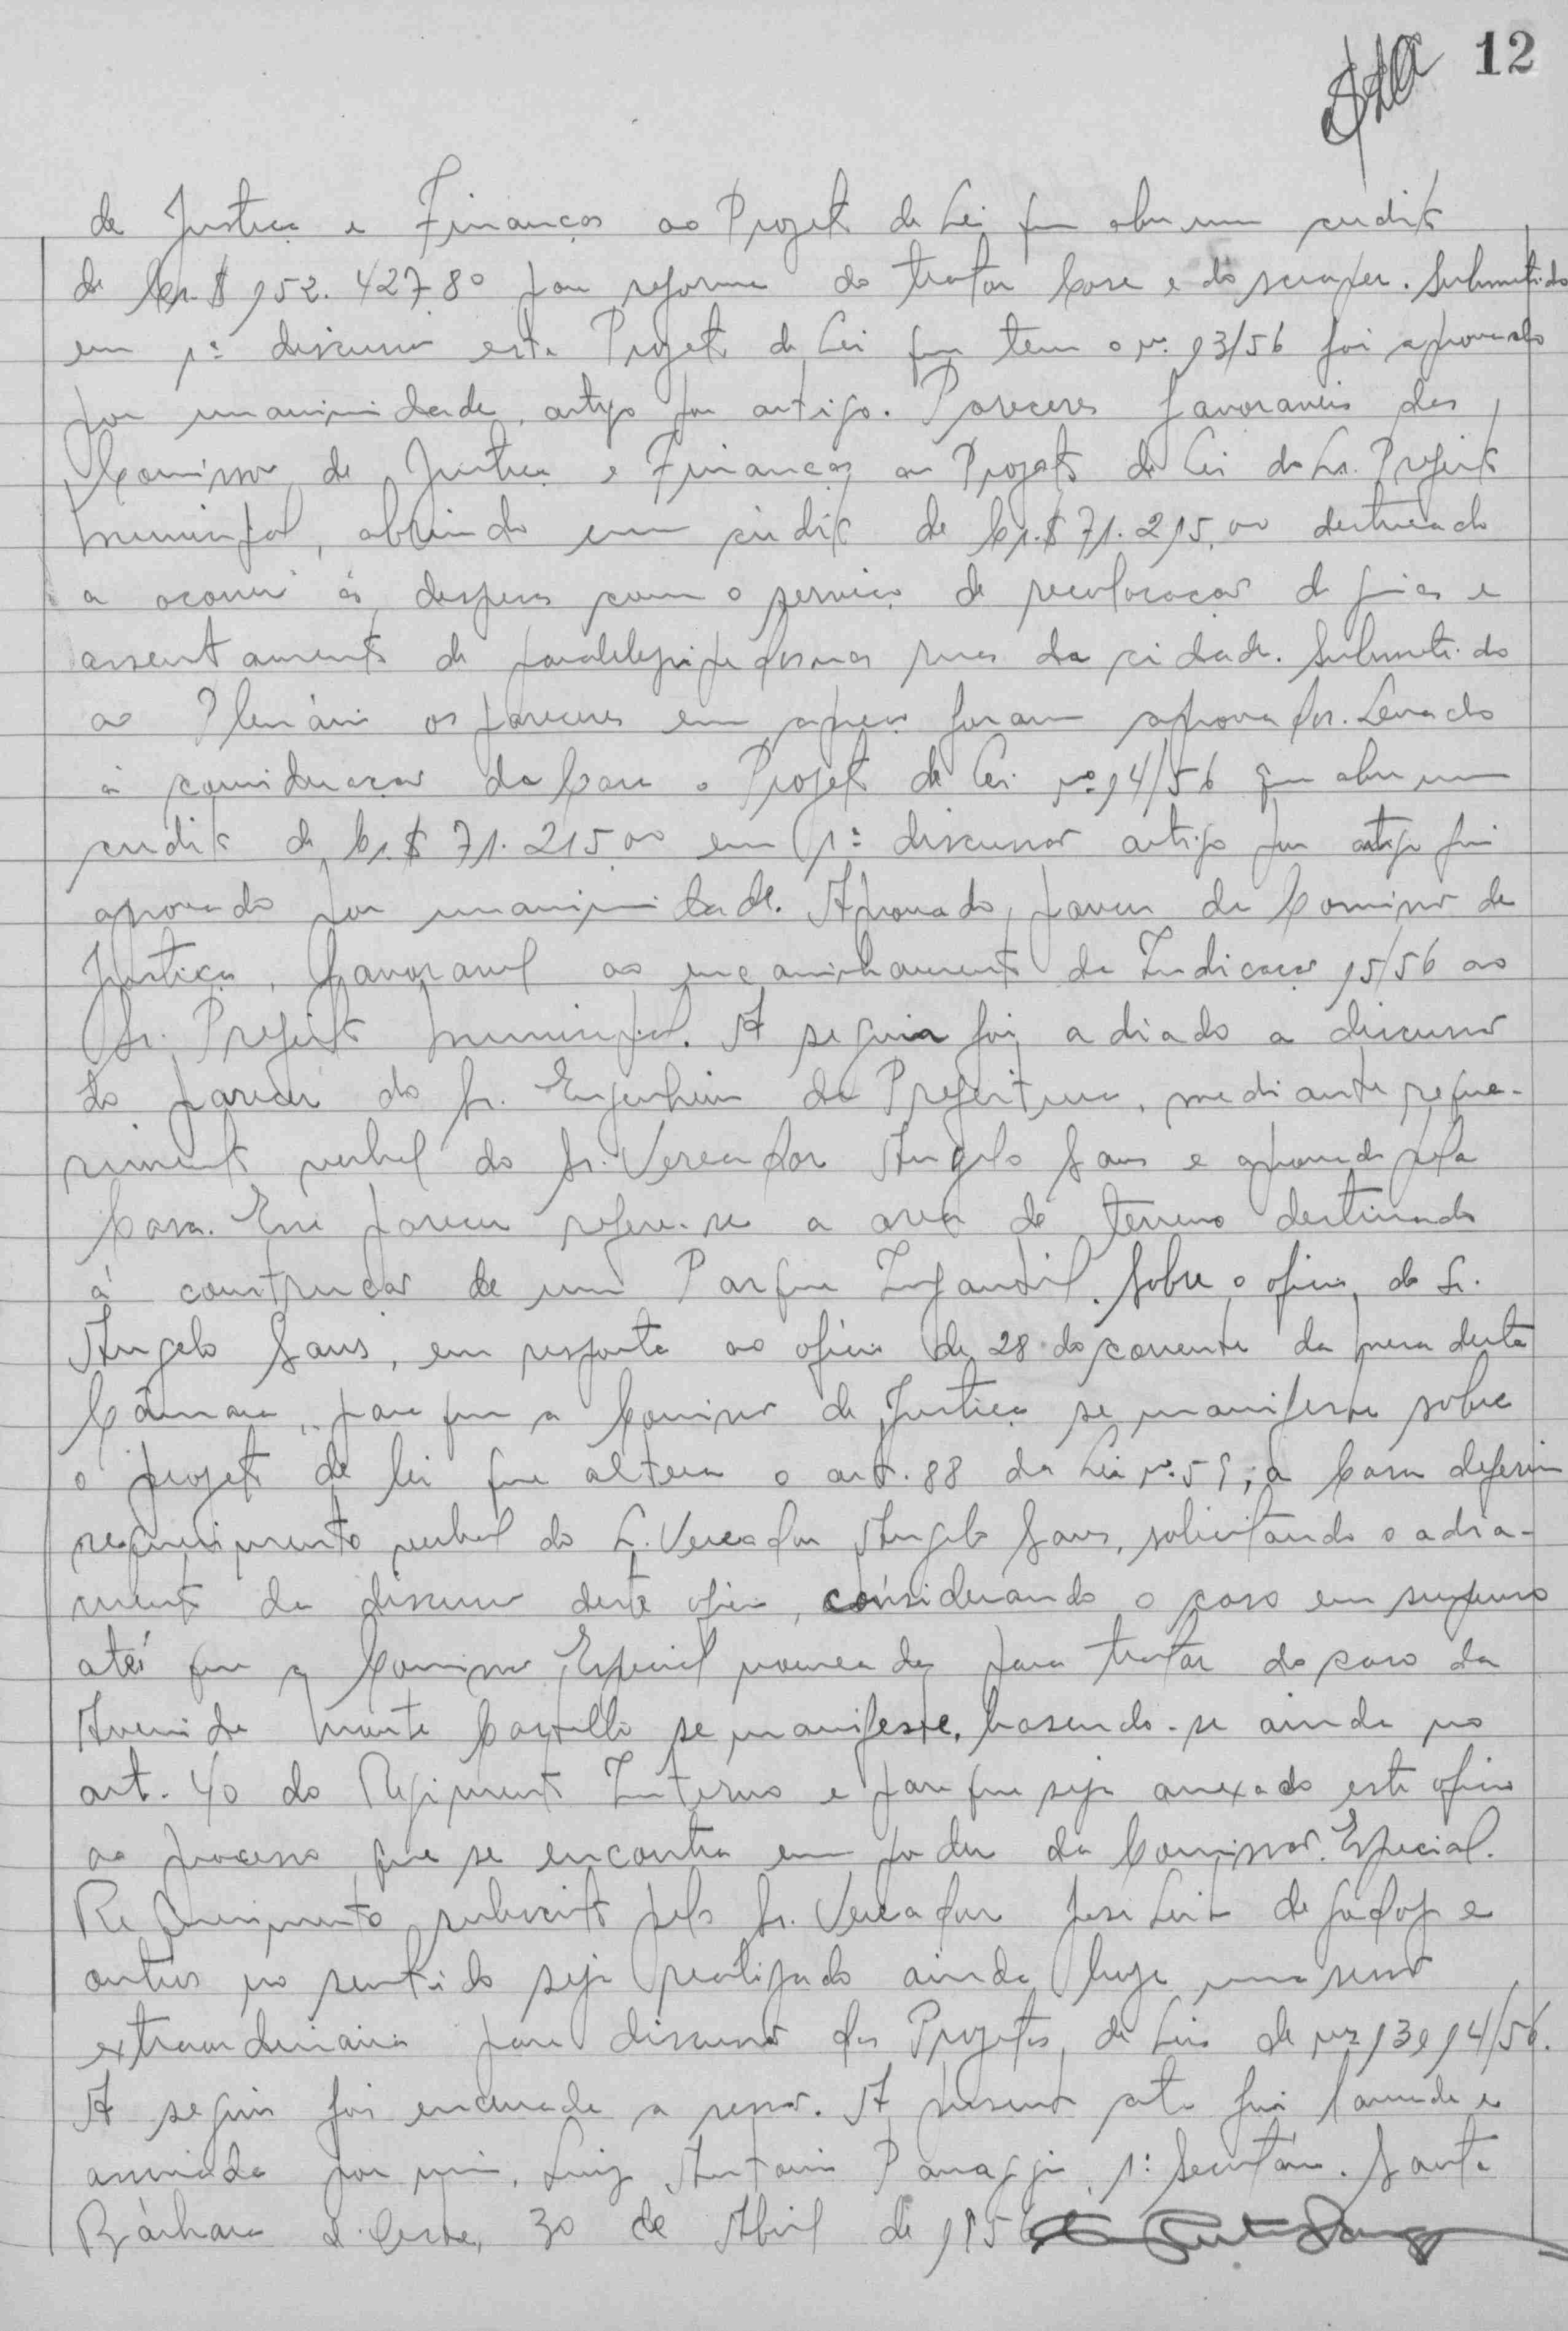 12
de Justiça e Finanças ao Projeto de Lei que abre um credito
de Cr.$ 152.427,80 para reforma do trator Case e do scraper. Submetido
em 1ª discussão este Projeto de Lei que tem o nº 13/56 foi aprovado
por unanimidade, artigo por artigo. Pareceres favoraveis das
Comissão de Justiça e Finanças ao Projeto de Lei do Sr. Prefeito
Municipal, abrindo um crédito de Cr.$ 71.215,00 destinado
a ocorrer ás despesas com o serviço de recolocação de guias e
assentamento de paralelepipedos nas ruas da cidade. Submetido
ao Plenário os pareceres em apreço foram aprovados. Levado
á consideração da Casa o Projeto de Lei nº 14/56 que abre um
credito de Cr.$ 71.215,00 em 1ª discussão artigo por artigo foi
aprovado por unanimidade. Aprovado, parecer da Comissão de
Justiça, favoravel ao encaminhamento da Indicação 15/56 ao
Sr. Prefeito Municipal. A seguir foi adiado a discussão
do parecer do Sr. Engenheiro da Prefeitura, mediante reque-
rimento verbal do Sr. Vereador Angelo Sans e aprovado pela
Casa. Esse parecer refere-se a area de terreno destinado
á construção de um Parque Infantil. Sobre o oficio do Sr.
Angelo Sans, em resposta ao oficio de 28 do corrente da mesa desta
Câmara, para que a Comissão de Justiça se manifeste sobre
o projeto de lei que altera o art. 88 da Lei nº 59, a Casa deferiu
requerimento verbal do Sr. Vereador Angelo Sans, solicitando o adia-
mento da discussão deste oficio, considerando o caso em suspenso
até que a Comissão Especial nomeada para tratar do caso da
Avenida Monte Castello se manifeste, baseando-se ainda no
art. 40 do Regimento Interno e para que seja anexado este oficio
ao processo que se encontra em poder da Comissão Especial.
Requerimento subscrito pelo Sr. Vereador José Leite de Godoy e
outros no sentido seja realizado ainda hoje uma sessão
extraordinaria para discussão dos Projetos de Leis de nºs 13 e 14/56.
A seguir foi encerrada a sessão. A presente ata foi lavrada e
assinada por mim, Luiz Antonio Panaggio, 1º Secretário. Santa
Bárbara d'Oeste, 30 de Abril de 1956